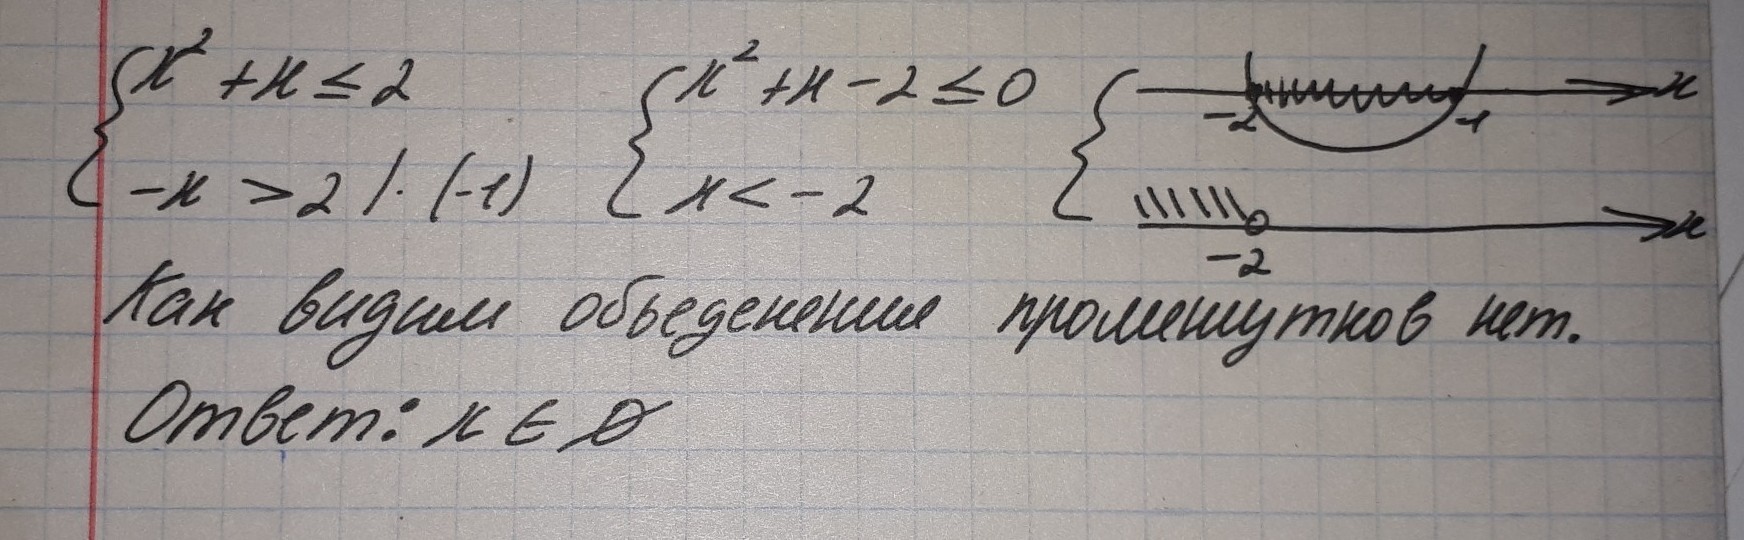 { x² + x ≤ 2 { x² + x - 2 ≤ 0 { -2 1 x
-x > 2 | · (-1) x < -2 -2 x
Как видим обьеденение промежутков нет.
Ответ: x ∈ ∅